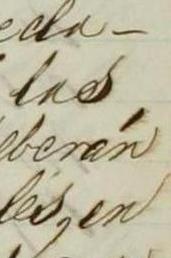 ecla-
las
eberán
les, en